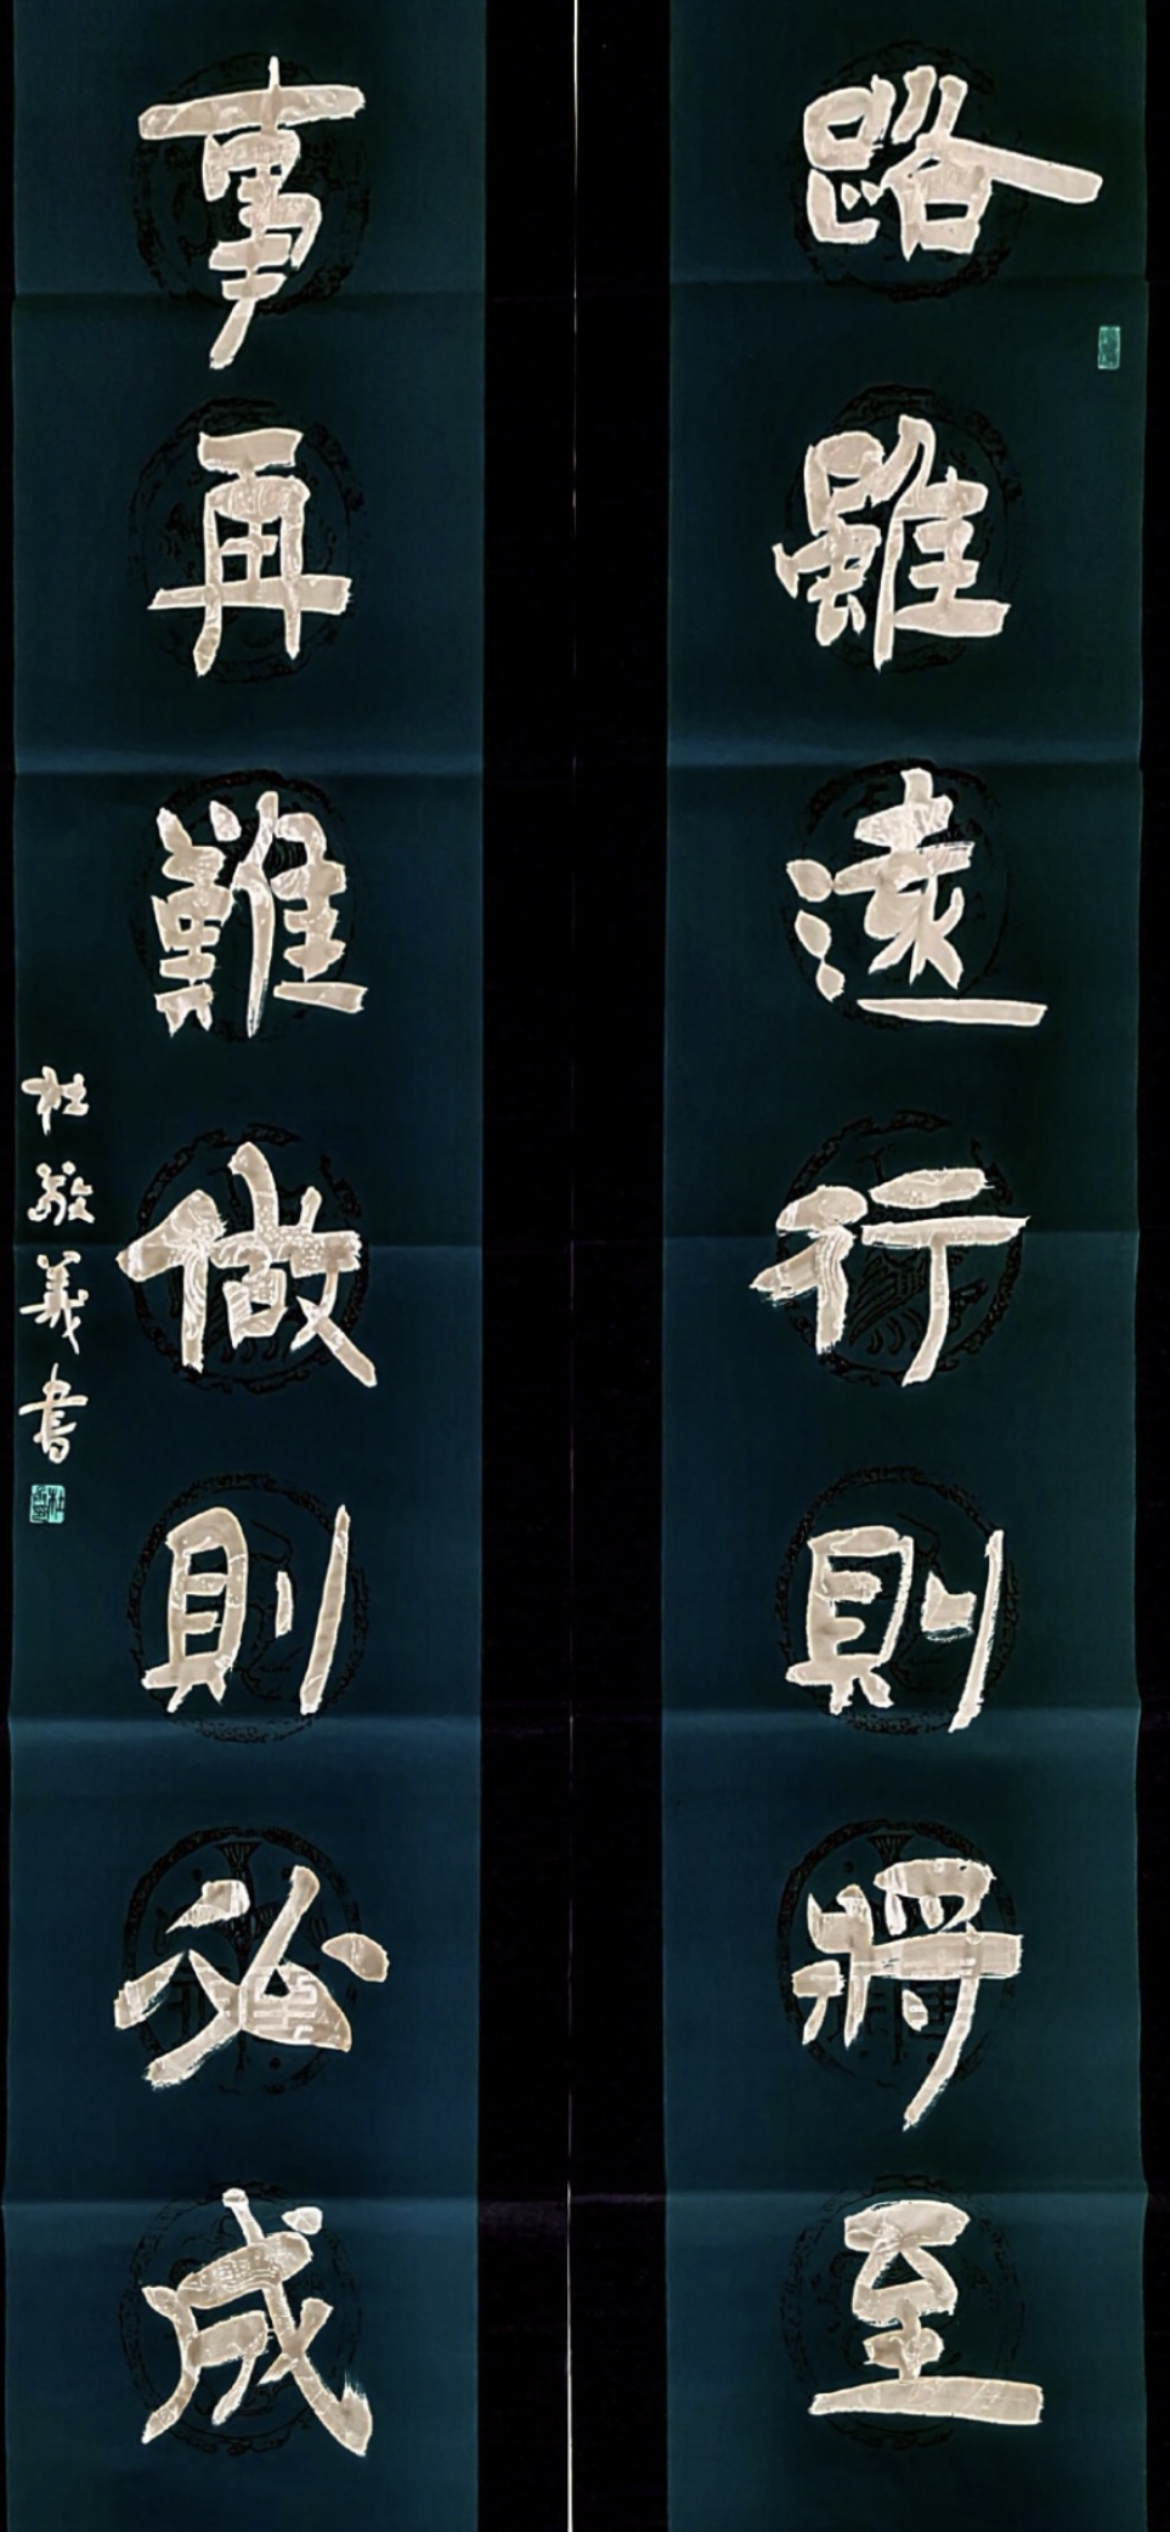 路雖遠行則將至
事再難做則必成
杜敬義書